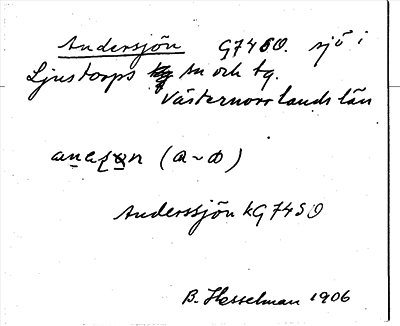 Andersjön G7450. sjö i
Ljustorps sn och tg.
Västernorrlands län
Anderssjön kG7450
B. Hesselman 1906